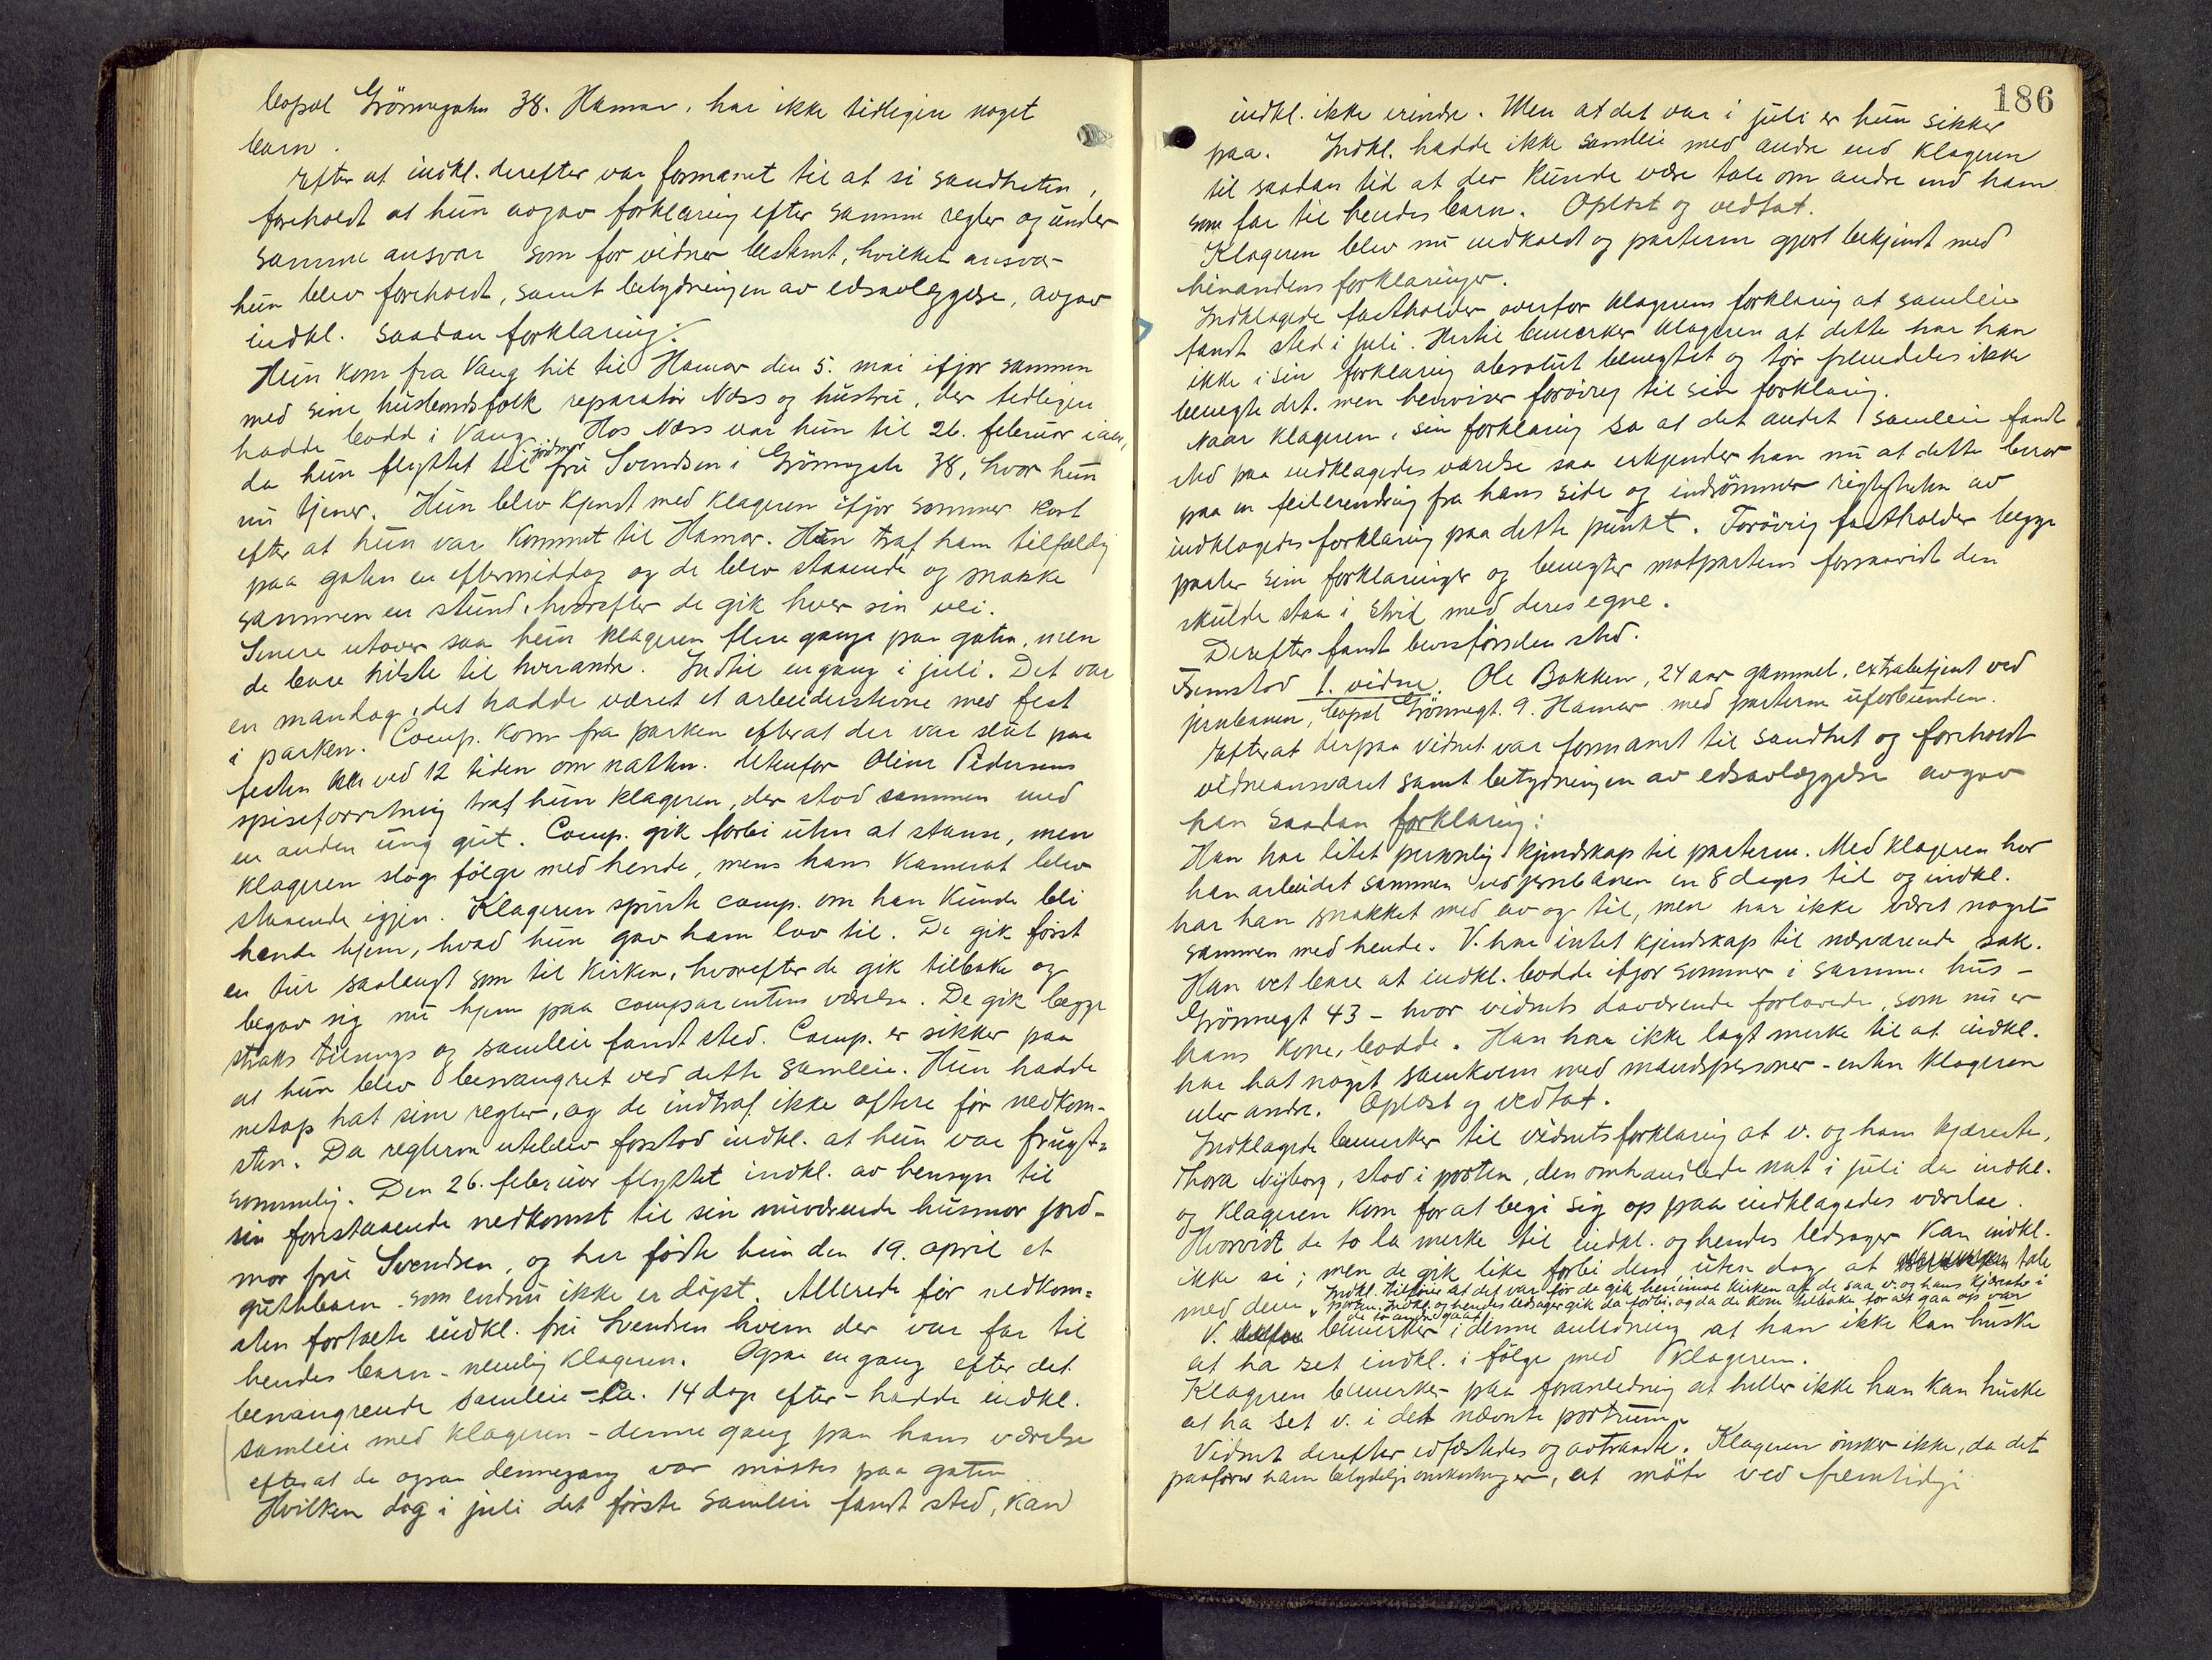 bopæl Grönnegaten 38. Hamar, har ikke tidligere noget
barn.
Efter at indkl. derefter var formanet til at si sandheten,
foreholdt at hun avgav forklaring efter samme regler og under
samme ansvar som for vidner bestemt, hvilket ansvar
hun blev foreholdt, samt betydningen av edsavlæggelse, avgav
indkl. saadan forklaring:
Hun kom fra Vang hit til Hamar den 5. mai ifjor sammen
med sine husbondsfolk reparatør Næss og hustru, der tidligere
hadde bodd i Vang. Hos Næss var hun til 26. februar iaar,
da hun flyttet til jordmor fru Svendsen i Grönnegate 38, hvor hun
nu tjener. Hun blev kjendt med klageren ifjor sommer kort
efter at hun var kommet til Hamar. Hun traf ham tilfældig
paa gaten en eftermiddag og de blev staaende og snakke
sammen en stund, hvorefter de gik hver sin vei.
Senere utover saa hun klageren flere gange paa gaten, men
de bare hilste til hverandre. Indtil engang i juli. Det var
en mandag, det hadde været et arbeiderstevne med fest
i parken. Comp. kom fra parken efterat der var slut paa
festen ved 12 tiden om natten. Utenfor Oline Pedersens
spiseforretning traf hun klageren, der stod sammen med
en anden ung gut. Comp. gik forbi uten at stanse, men
klageren slog følge med hende, mens hans kamerat blev
staaende igjen. Klageren spurte comp. om han kunde bli
hende hjem, hvad hun gav ham lov til. De gik først
en tur saalangt som til kirken, hvorefter de gik tilbake og
begav sig nu hjem paa comparentens værelse. De gik begge
straks tilsengs og samleie fandt sted. Comp. er sikker paa
at hun blev besvangret ved dette samleie. Hun hadde
netop hat sine regler, og de indtraf ikke oftere før nedkom-
sten. Da reglerne uteblev forstod indkl. at hun var frugt-
sommelig. Den 26. februar flyttet indkl. av hensyn til
sin forestaaende nedkomst til sin nuværende husmor jord-
mor fru Svendsen, og her fødte hun den 19. april et
guttebarn som endnu ikke er døpt. Allerede før nedkom-
sten fortalte indkl. fru Svendsen hvem der var far til
hendes barn - nemlig klageren. Ogsaa en gang efter det
besvangrende samleie - ca. 14 dage efter - hadde indkl.
samleie med klageren - denne gang paa hans værelse
efterat de ogsaa dennegang var møttes paa gaten.
Hvilken dag i juli det første samleie fandt sted, kan
186
indkl. ikke erindre. Men at det var i juli er hun sikker
paa. Indkl. hadde ikke samleie med andre end klageren
til saadan tid at der kunde være tale om andre end ham
som far til hendes barn. Oplæst og vedtat.
Klageren blev nu indkaldt og parterne gjort bekjendt med
hinandens forklaringer.
Indklagede fastholder overfor klagerens forklaring at samleie
fandt sted i juli. Hertil bemerker klageren at dette har han
ikke i sin forklaring absolut benegtet og tør fremdeles ikke
benegte det, men henviser forøvrig til sin forklaring.
Naar klageren i sin forklaring sa at det andet samleie fandt
sted paa indklagedes værelse saa erkjender han nu at dette beror
paa en feilerindring fra hans side og indrömmer rigtigheten av
indklagedes forklaring paa dette punkt. Forövrig fastholder begge
parter sine forklaringer og benegter motpartens forsaavidt den
skulde staa i strid med deres egne.
Derefter fandt bevisførselen sted.
Fremstod 1. vidne. Ole Bakken, 24 aar gammel, extrabetjent ved
jernbanen, bopæl Grönnegt. 9. Hamar med parterne uforbunden.
Efterat derpaa vidnet var formanet til sandhet og foreholdt
vidneansvaret samt betydningen av edsavlæggelse avgav
han saadan forklaring:
Han har litet personlig kjendskap til parterne. Med klageren har
han arbeidet sammen ved jernbanen en 8 dages tid og indkl.
har han snakket med av og til, men har ikke været noget
sammen med hende. V. har intet kjendskap til nærværende sak.
Han vet bare at indkl. bodde ifjor sommer i samme hus -
Grönnegt 43 - hvor vidnets daværende forlovede, som nu er
hans kone, bodde. Han har ikke lagt merke til at indkl.
har hat noget samkvem med mandspersoner - enten klageren
eller andre. Oplæst og vedtat.
Indklagede bemerker til vidnets forklaring at v. og hans kjæreste,
Thora Nyborg, stod i porten, den omhandlede nat i juli da indkl.
og klageren kom for at begi sig op paa indklagedes værelse.
Hvorvidt de to la merke til indkl. og hendes ledsager kan indkl.
ikke si; men de gik like forbi dem uten dog at tale
med dem. Indkl. tilføier at det var før de gik hen imot kirken at de saa v. og hans kjæreste i
porten. Indkl. og hendes ledsager gik da forbi, og da de kom tilbake for at gaa op var
de to andre gaat.
V. bemerker i denne anledning at han ikke kan huske
at ha set indkl. i følge med klageren.
Klageren bemerker paa foranledning at heller ikke han kan huske
at ha set v. i det nævnte portrum.
Vidnet derefter edfæstedes og avtraadte. Klageren ønsker ikke, da det
paafører ham betydelige omkostninger, at möte ved fremtidige